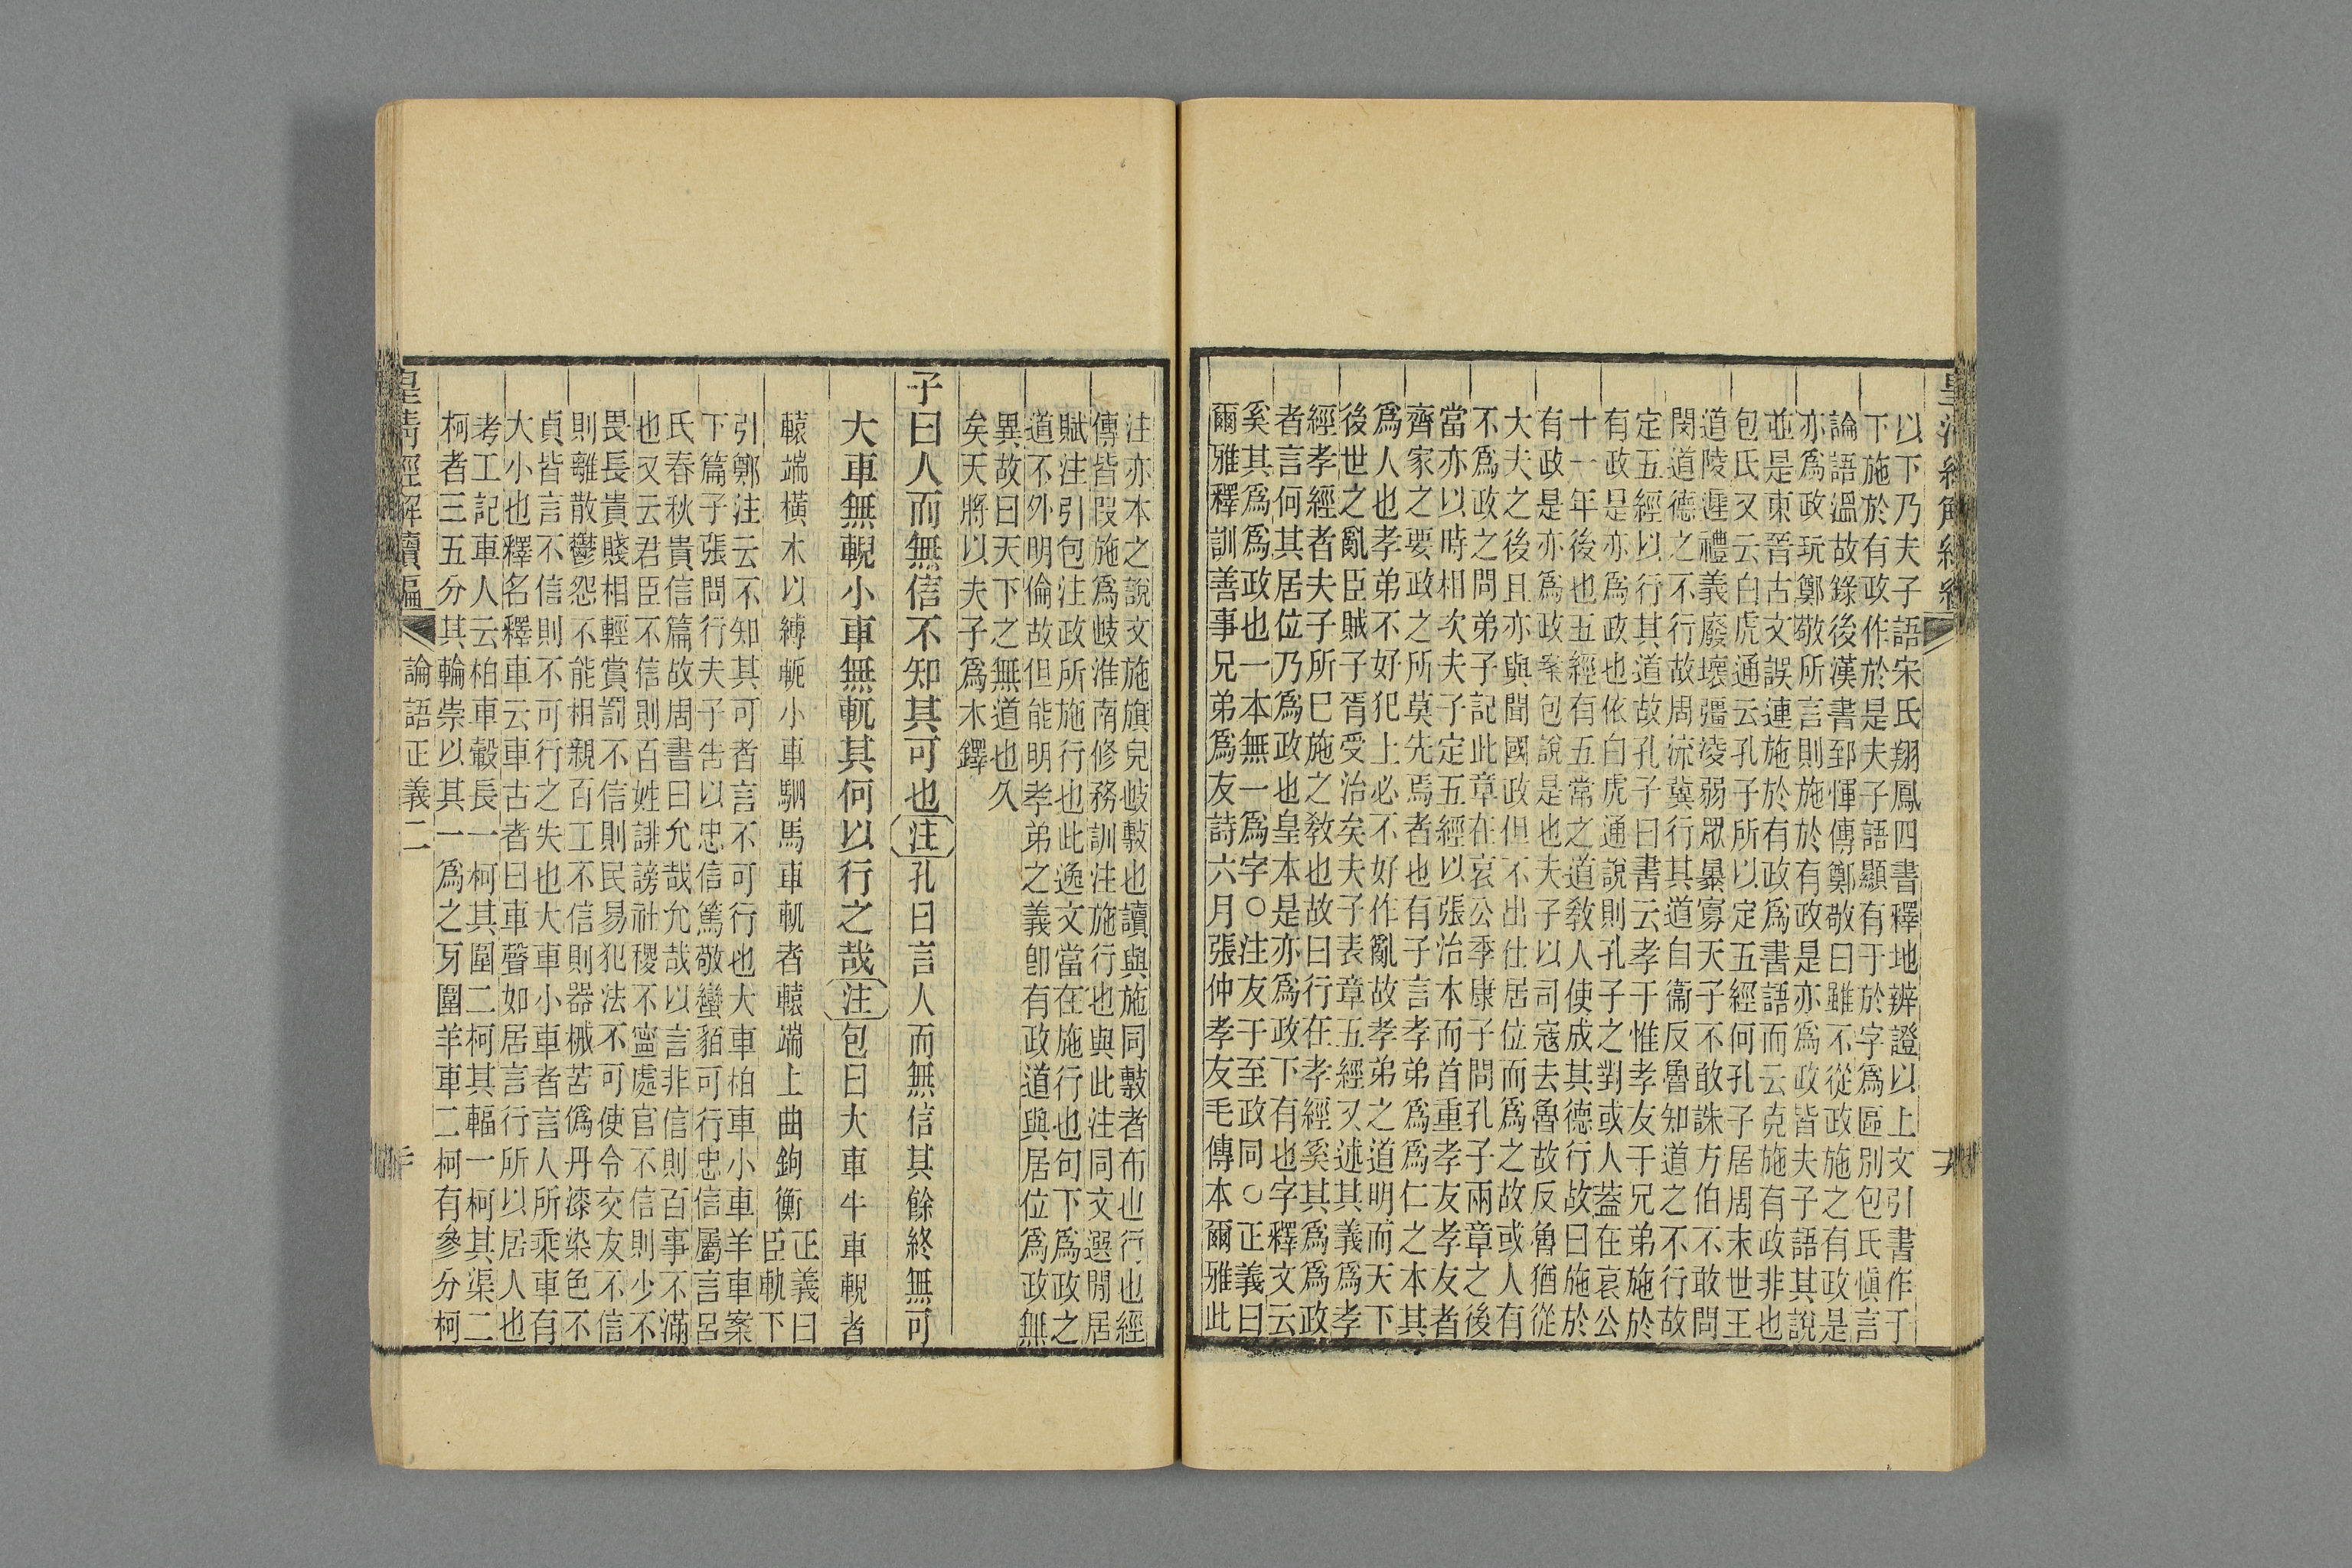 皇清經解續編
以下乃夫子語宋氏翔鳳四書釋地辨證以上文引書作于
下施於有政作於是夫子語顯有于於字爲區別包氏愼言
論語溫故錄後漢書郅惲傳鄭敬曰雖不從政施之有政是
亦爲政玩鄭敬所言則施於有政是亦爲政皆夫子語其說
並是東晉古文誤連施於有政爲書語而云克施有政非也
包氏又云白虎通云孔子所以定五經何孔子居周末世王
道陵遲禮義廢壞彊淩弱眾暴寡天子不敢誅方伯不敢問
閔道德之不行故周流冀行其道自衞反魯知道之不行故
定五經以行其道故孔子曰書云孝于惟孝友于兄弟施於
有政是亦爲政也依白虎通說則孔子之對或人蓋在哀公
十一年後也五經有五常之道教人使成其德行故曰施於
有政是亦爲政案包說是也夫子以司寇去魯故反魯猶從
大夫之後且亦與聞國政但不出仕居位而爲之故或人有
不爲政之問弟子記此章在哀公季康子問孔子兩章之後
當亦以時相次夫子定五經以張治本而首重孝友孝友者
齊家之要政之所莫先焉者也有子言孝弟爲爲仁之本其
爲人也孝弟不好犯上必不好作亂故孝弟之道明而天下
後世之亂臣賊子胥受治矣夫子表章五經又述其義爲孝
經孝經者夫子所巳施之教也故曰行在孝經奚其爲爲政
者言何其居位乃爲政也皇本是亦爲政下有也字釋文云
奚其爲爲政也一本無一爲字○注友于至政同○正義曰
爾雅釋訓善事兄弟爲友詩六月張仲孝友毛傳本爾雅此
注亦本之說文施旗皃㪏也讀與施同㪏者布也行也經
傳皆叚施爲㪏淮南修務訓注施行也與此注同文選閒居
賦注引包注政所施行也此逸文當在施行也句下爲政之
道不外明倫故但能明孝弟之義卽有政道與居位爲政無
異故曰天下之無道也久
矣天將以夫子爲木鐸
子曰人而無信不知其可也注孔曰言人而無信其餘終無可
大車無輗小車無軏其何以行之哉注包曰大車牛車輗者
轅端橫木以縛軶小車駟馬車軏者轅端上曲鉤衡正義曰
臣軌下
引鄭注云不知其可者言不可行也大車柏車小車羊車案
下篇子張問行夫子吿以忠信篤敬蠻貊可行忠信屬言呂
氏春秋貴信篇故周書曰允哉允哉以言非信則百事不滿
也又云君臣不信則百姓誹謗社稷不寧處官不信則少不
畏長貴賤相輕賞罰不信則民易犯法不可使令交友不信
則離散鬱怨不能相親百工不信則器械苦僞丹漆染色不
貞皆言不信則不可行之失也大車小車者言人所乘車有
大小也釋名釋車云車古者曰車聲如居言行所以居人也
考工記車人云柏車轂長一柯其圍二柯其輻一柯其渠二
柯者三五分其輪崇以其一爲之牙圍羊車二柯有參分柯
皇清經解續編
論語正義二